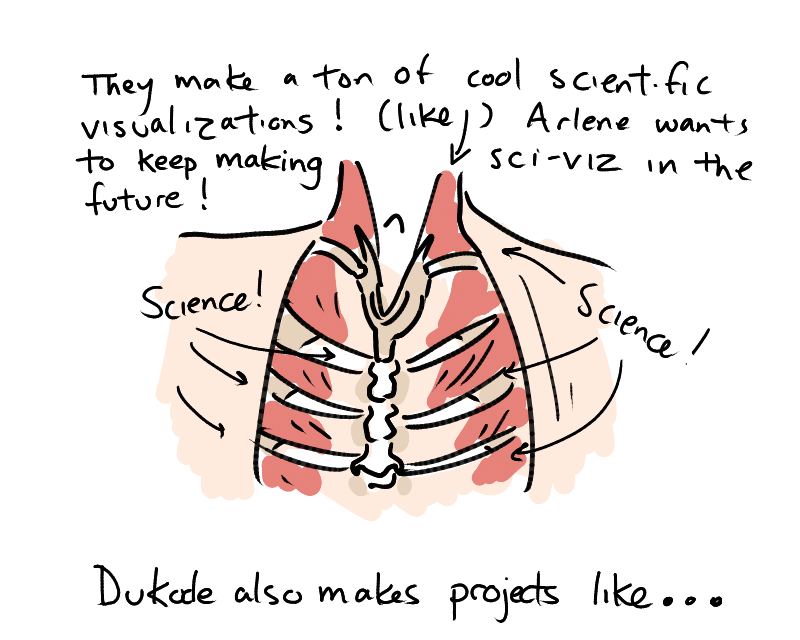 They make a ton of cool scientific
visualizations! (like ) Arlene wants
to keep making sci-viz in the
future!
Science!
Science!
Dukode also makes projects like...